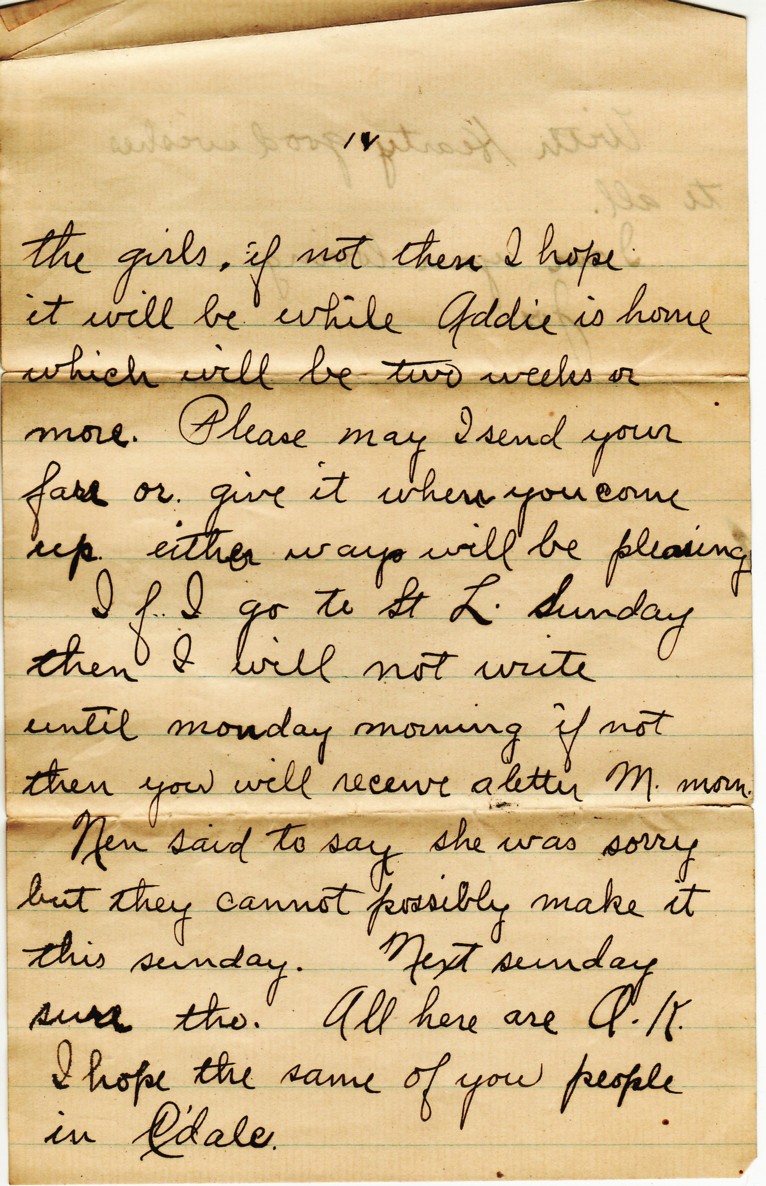 IV
the girls, if not then I hope
it will be while Addie is home
which will be two weeks or
more. Please may I send your
fare or give it when you come
up either ways will be pleasing
If I go to St L. Sunday
then I will not write
until monday morning if not
then you will receive a letter M. morn.
Nen said to say she was sorry
but they cannot possibly make it
this sunday. Next sunday
sure tho. All here are O.K.
I hope the same of you people
in C'dale.
With Hearty good wishes
to all.